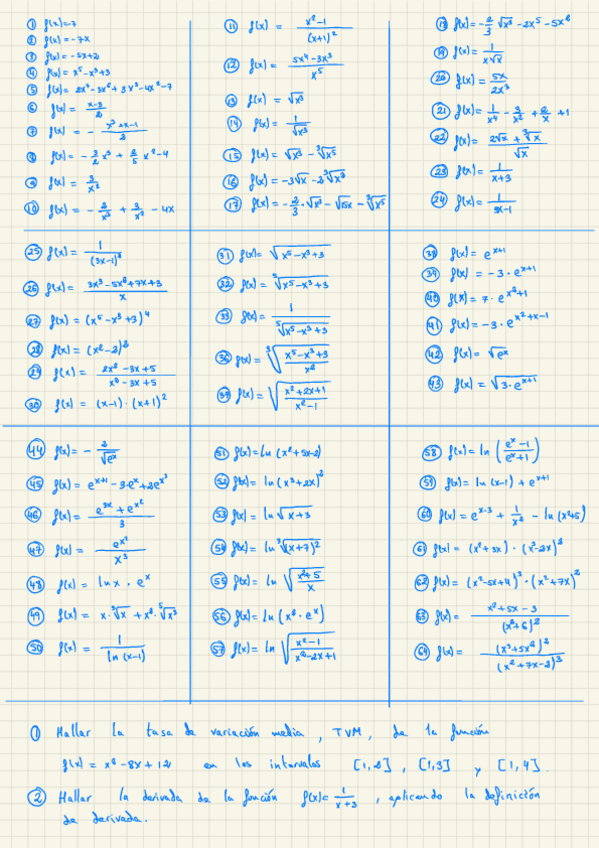 ① f(x)=-7
② f(x)= -7x
③ f(x) = -5x+2
④ f(x)= x⁵-x³+3
⑤ f(x)= 2x⁹-3x⁶+3x³-4x²-7
⑥ f(x)= (x-3)/2
⑦ f(x) = -
⑧ f(x)= -3/2 x³ + 2/5 x²-4
⑨ f(x)=
⑩ f(x)= + -4x
⑪ f(x) = (x²-1)/(x+1)²
⑫ f(x)= (5x⁴-3x³)/x⁵
⑬ f(x) = √x³
⑭ f(x)= 1/√x³
⑮ f(x) = √x³ - ³√x⁵
⑯ f(x)= -3√x -2 ³√x²
⑰ f(x)= -2/3·√x³
⑱ f(x)= -2/3 √x³ -2x⁵ -5x²
⑲ f(x)= 1/(x√x)
⑳ f(x)= 5x/2x³
㉑ f(x)= +1
㉒ f(x)= (2√x + ³√x)/√x
㉓ f(x)= 1/(x+3)
㉔ f(x)= 1/(3x-1)
㉕ f(x)= 1/(3x-1)²
㉖ f(x)= (3x³-5x²+7x+3)/x
㉗ f(x)= (x⁵-x³+3)⁴
㉘ f(x)= (x²-2)³
㉙ f(x) = (2x²-3x+5)/(x²-3x+5)
㉚ f(x) = (x-1)·(x+1)²
㉛ f(x)= √(x⁵-x³+3)
㉜ f(x)= ⁵√(x⁵-x³+3)
㉝ f(x)= 1/⁵√(x⁵-x³+3)
f(x)= ⁵√((x⁵-x³+3)/x²)
f(x)= √((x²+2x+1)/(x²-1))
㊳ f(x)= eˣ⁺¹
㊴ f(x) = -3·eˣ⁺¹
㊵ f(x) = 7·e^(x²+1)
㊶ f(x)= -3·e^(x²+x-1)
㊷ f(x)= √eˣ
㊸ f(x)= √(3·eˣ⁺¹)
㊹ f(x)= -2/√eˣ
㊺ f(x)= eˣ⁺¹-3·eˣ+2e^(x³)
㊻ f(x)= (e³ˣ + e^(x²))/3
㊼ f(x) = e^(x²)/x³
㊽ f(x) = ln x · eˣ
㊾ f(x) = x·³√x + x²·⁵√x³
㊿ f(x) = 1/ln (x-1)
(51) f(x)= ln (x²+5x-2)
(52) f(x)= ln (x³+2x)²
(53) f(x)= ln √(x+3)
(54) f(x)= ln ³√(x+7)²
f(x)= ln √((x²+5)/x)
(56) f(x)= ln (x²·eˣ)
(57) f(x)= ln √((x²-1)/(x²-2x+1))
(58) f(x)= ln ((eˣ-1)/(eˣ+1))
(59) f(x)= ln (x-1) + eˣ⁺¹
(60) f(x)= eˣ⁻³ + 1/x² - ln (x²+5)
(61) f(x) = (x²+3x)·(x³-2x)²
(62) f(x)= (x²-5x+4)³·(x²+7x)²
f(x)= (x²+5x-3)/(x²+6)²
(64) f(x)= (x³+5x²)²/(x²+7x-2)³
① Hallar la tasa de variación media, TVM, de la función
f(x)= x²-8x+12 en los intervalos [1,2], [1,3] y [1,4].
② Hallar la derivada de la función f(x)= 1/(x+3), aplicando la definición
de derivada.